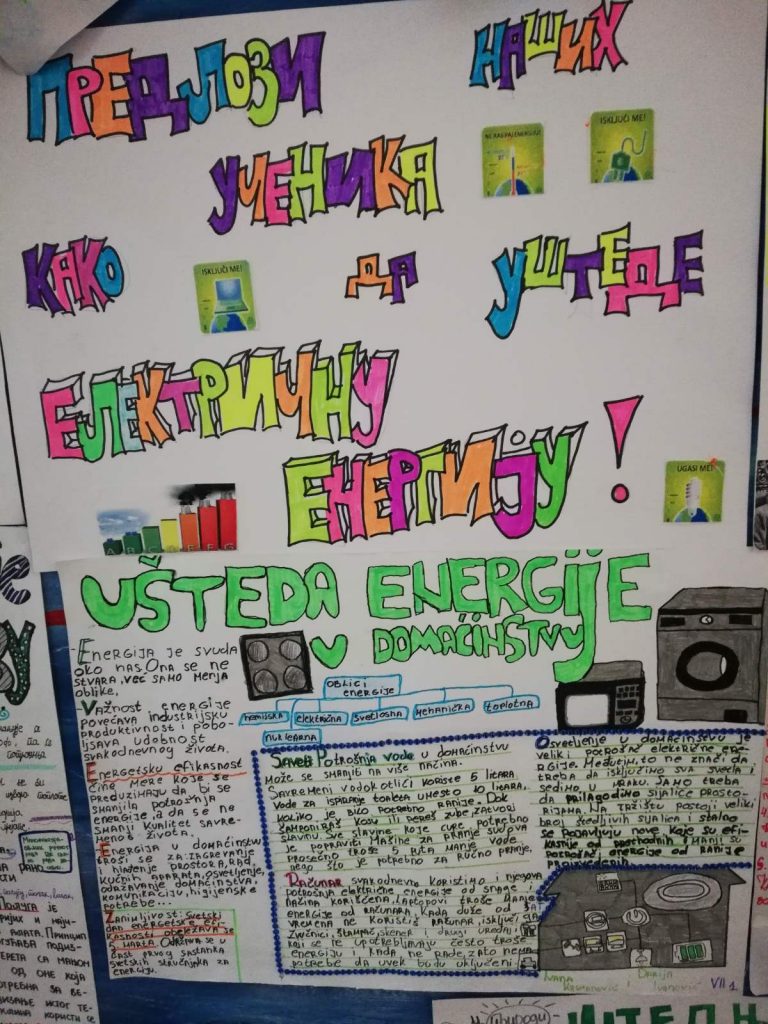 ПРЕДЛОЗИ НАШИХ
УЧЕНИКА
NE RASIPAJ ENERGIJU!
ISKLJUČI ME!
КАКО ДА УШТЕДЕ
ISKLJUČI ME!
ЕЛЕКТРИЧНУ
ЕНЕРГИЈУ!
UGASI ME!
A B C D E F G
UŠTEDA ENERGIJE
U DOMAĆINSTVU
-ENERGIJA JE SVUDA
OKO NAS. ONA SE NE
STVARA, VEĆ SAMO MENJA
OBLIKE.
-VAŽNOST ENERGIJE
POVEĆAVA INDUSTRIJSKU
PRODUKTIVNOST I POBO-
LJŠAVA UDOBNOST
SVAKODNEVNOG ŽIVOTA.
ENERGETSKU EFIKASNOST
ČINE MERE KOJE SE
PREDUZIMAJU DA BI SE
SMANJILA POTROŠNJA
ENERGIJE, A DA SE NE
SMANJI KVALITET SAVRE-
MENOG ŽIVOTA.
ENERGIJA U DOMAĆINSTVU
TROŠI SE ZA: ZAGREVANJE
I HLAĐENJE PROSTORA, RAD
KUĆNIH APARATA, OSVETLJENJE,
ODRŽAVANJE DOMAĆINSTVA,
KOMUNIKACIJU, HIGIJENSKE
POTREBE...
ZANIMLJIVOST: SVETSKI
DAN ENERGETSKE EFI-
KASNOSTI OBELEŽAVA SE
5 MARTA. ODRŽAVA SE U
ČAST PRVOG SASTANKA
SVETSKIH STRUČNJAKA ZA
ENERGIJU.
OBLICI
ENERGIJE
HEMIJSKA
ELEKTRIČNA
SVETLOSNA
MEHANIČKA
TOPLOTNA
NUKLEARNA
SAVETI POTROŠNJA VODE U DOMAĆINSTVU
MOŽE SE SMANJITI NA VIŠE NAČINA.
SAVREMENI VODOKOTLIĆI KORISTE 5 LITARA
VODE ZA ISPIRANJE TOALETA UMESTO 10 LITARA,
KOLIKO JE BILO POTREBNO RANIJE. DOK
ŠAMPONIRAŠ KOSU ILI PEREŠ ZUBE, ZATVORI
SLAVINU. SVE SLAVINE KOJE CURE POTREBNO
JE POPRAVITI. MAŠINE ZA PRANJE SUDOVA
PROSEČNO TROŠE 5 PUTA MANJE VODE,
NEGO ŠTO JE POTREBNO ZA RUČNO PRANJE.
RAČUNAR SVAKODNEVNO KORISTIMO I NJEGOVA
POTROŠNJA ELEKTRIČNE ENERGIJE OD SNAGE I
NAČINA KORIŠĆENJA. LAPTOPOVI TROŠE MANJE
ENERGIJE OD RAČUNARA. KADA DUŽE OD
VREMENA NE KORISTIŠ RAČUNAR, ISKLJUČI GA
ZVUČNICI, ŠTAMPAČ, SKENER I DRUGI UREĐAJI
KOJI SE NE UPOTREBLJAVAJU ČESTO TROŠE
ENERGIJU I KADA NE RADE, ZATO NEMA
POTREBE DA UVEK BUDU UKLJUČENI.
OSVETLJENJE U DOMAĆINSTVU JE
VELIKI POTROŠAČ ELEKTRIČNE ENE-
RGIJE. MEĐUTIM, TO NE ZNAČI DA
TREBA DA ISKLJUČIMO SVA SVETLA I
SEDIMO U MRAKU. SAMO TREBA
DA PRILAGODIMO SIJALICE PROSTO-
RIJAMA. NA TRŽIŠTU POSTOJI VELIKI
BROJ ŠTEDLJIVIH SIJALICA I STALNO
SE POJAVLJUJU NOVE KOJE SU EFI-
KASNIJE OD PRETHODNIH I MANJI SU
POTROŠAČI ENERGIJE OD RANIJE
PROIZVEDENIH.
IVANA
DARIJA
IVANOVIĆ
VII 1
ПОЛУГА ЈЕ